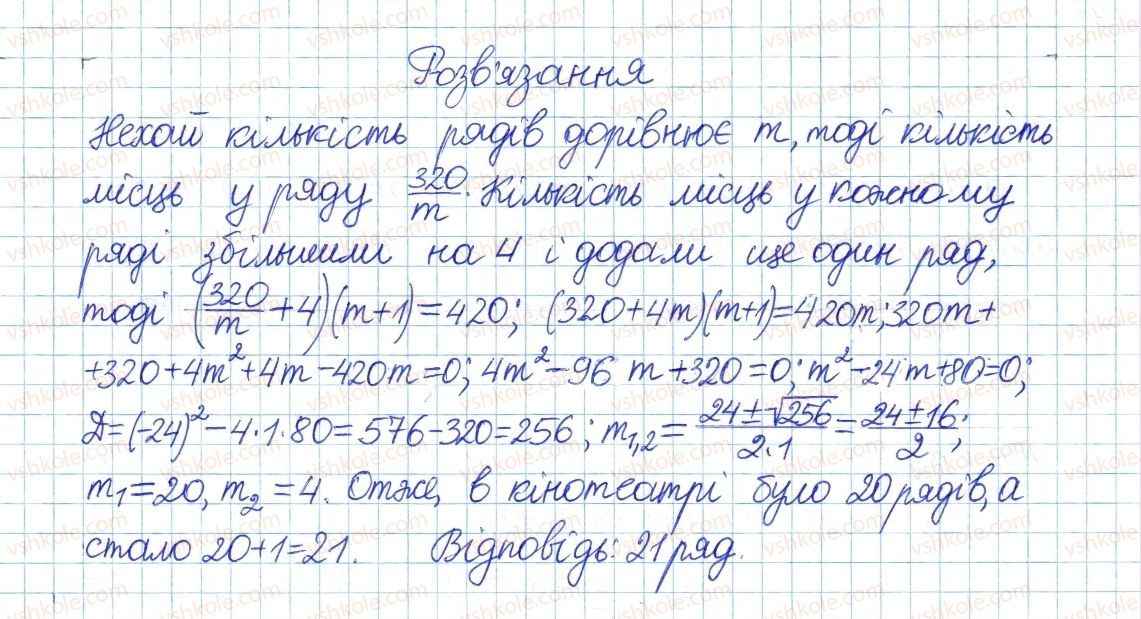 Розв'язання
Нехай кількість рядів дорівнює m, тоді кількість
місць у ряду 320/m. Кількість місць у кожному
ряді збільшили на 4 і додали ще один ряд,
тоді (320/m + 4)(m+1)=420; (320+4m)(m+1)=420m; 320m+
+320+4m²+4m-420m=0; 4m²-96 m+320=0; m²-24m+80=0;
Д=(-24)²-4·1·80=576-320=256; m1,2= (24±√256)/(2·1) = (24±16)/2;
m1=20, m2=4. Отже, в кінотеатрі було 20 рядів, а
стало 20+1=21. Відповідь: 21 ряд.